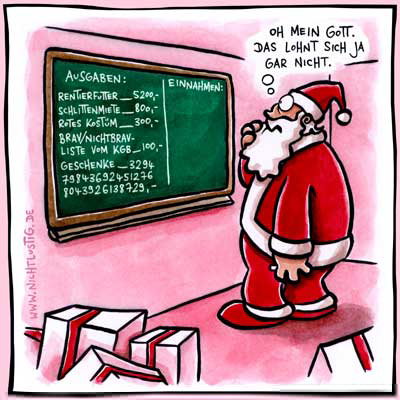 OH MEIN GOTT.
DAS LOHNT SICH JA
GAR NICHT.
AUSGABEN:
RENTIERFUTTER__5200,-
SCHLITTENMIETE__800,-
ROTES KOSTÜM__300,-
BRAV/NICHTBRAV-
LISTE VOM KGB__100,-
GESCHENKE__3294
79843692451276
8043926138729,-
EINNAHMEN:
WWW.NICHTLUSTIG.DE